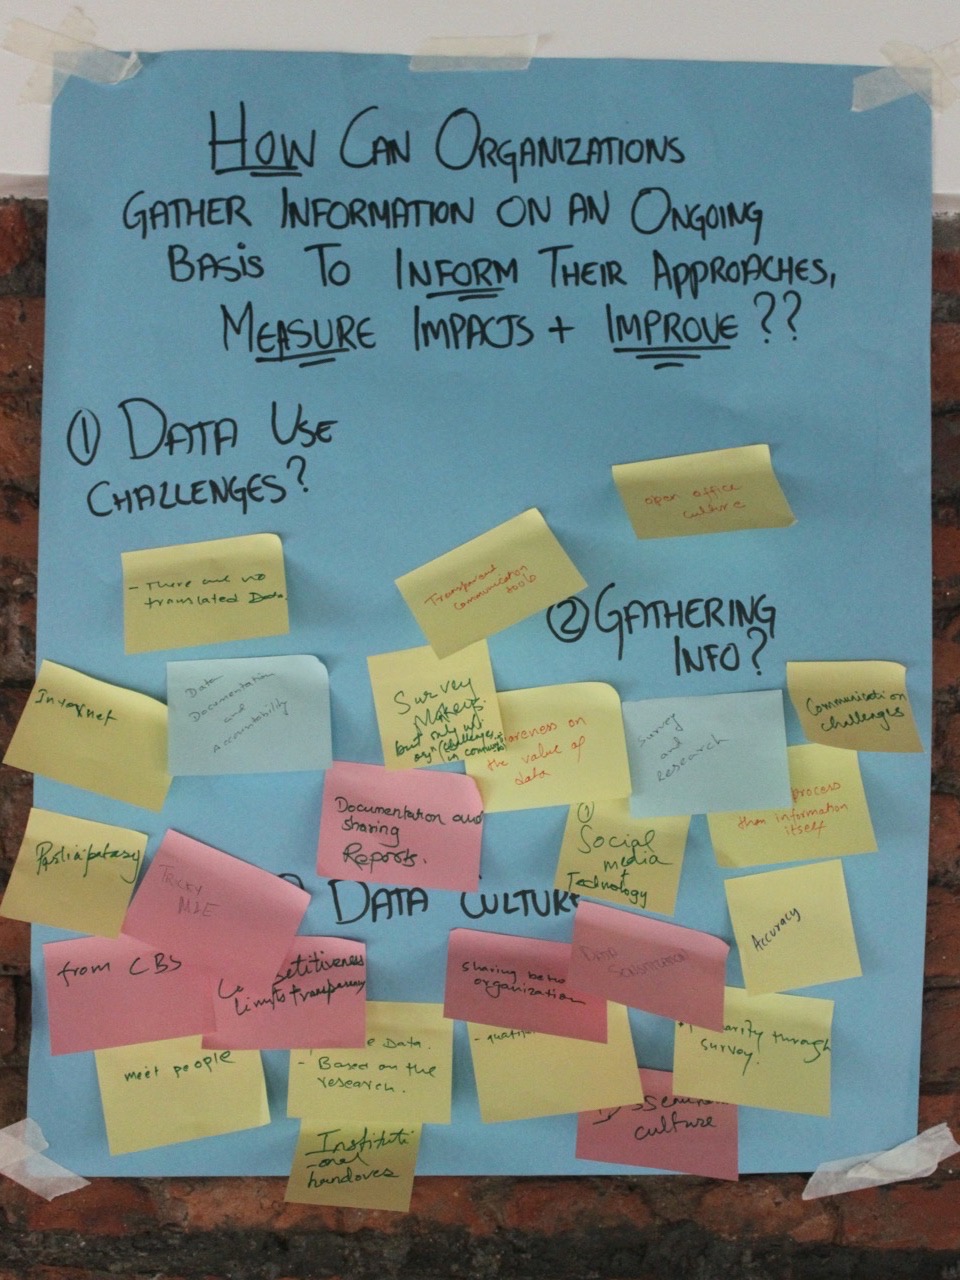 HOW CAN ORGANIZATIONS
GATHER INFORMATION ON AN ONGOING
BASIS TO INFORM THEIR APPROACHES,
MEASURE IMPACTS + IMPROVE??
① DATA USE
CHALLENGES?
open office
culture
- There are no
translated Data.
Transparent
communication
tools
② GATHERING
INFO?
Internet
Data
Documentation
and
Accountability
Survey
Makers.
but only us
is
areness on
the value of
data
Survey
and
research
Communication
challenges
process
than information
itself
Documentation and
sharing
Reports.
①
Social
media
+
Technology
TRICKY
M&E
DATA CULTURE
Accuracy
from CBS
etitiveness
limits transparency
sharing betw
organization
DATA
meet people
e Data.
- Based on the
research.
arity through
survey.
culture
Instituti
-onal
handover